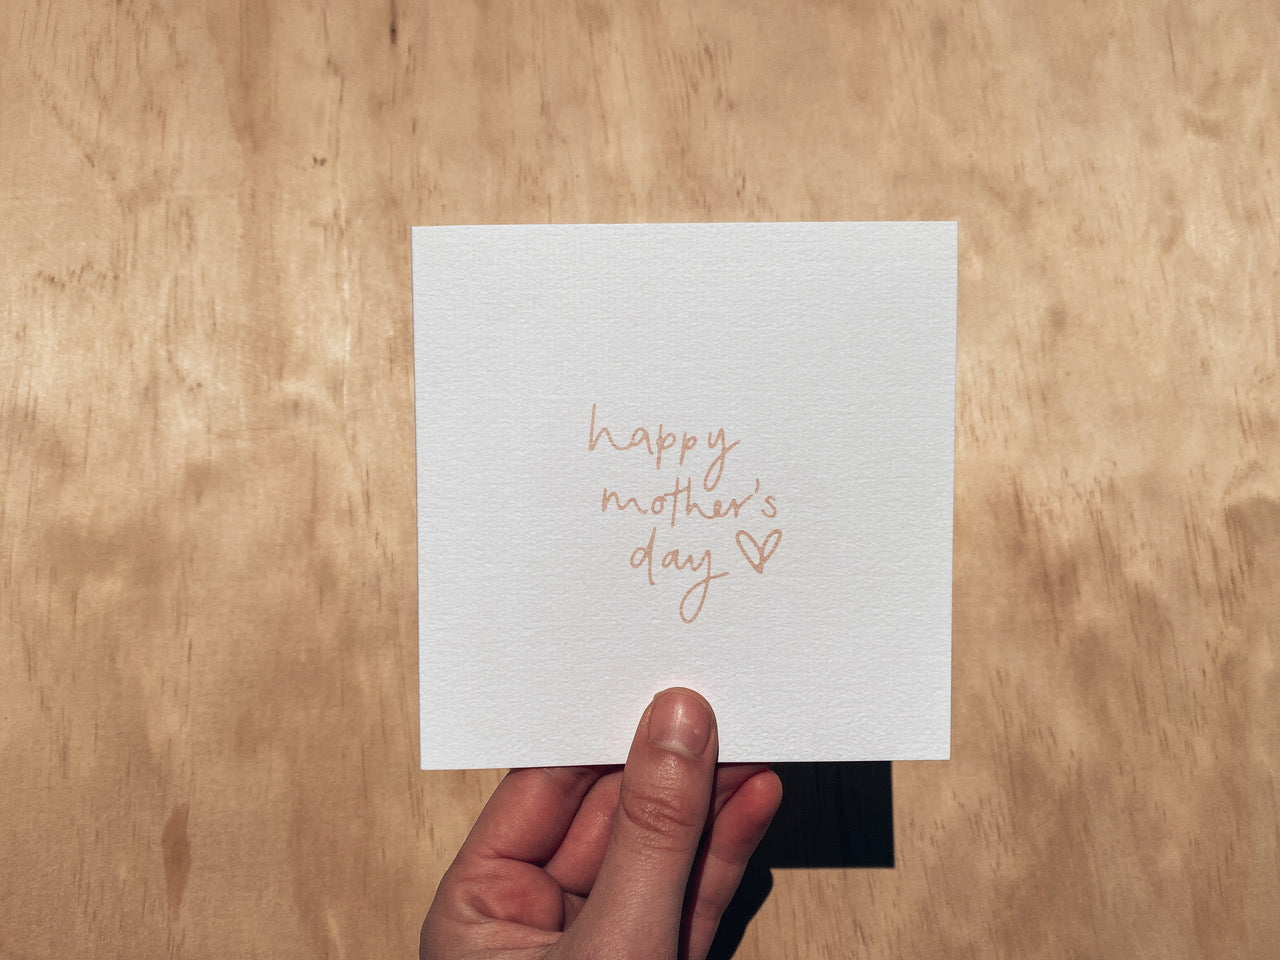 happy
mother's
day ♡